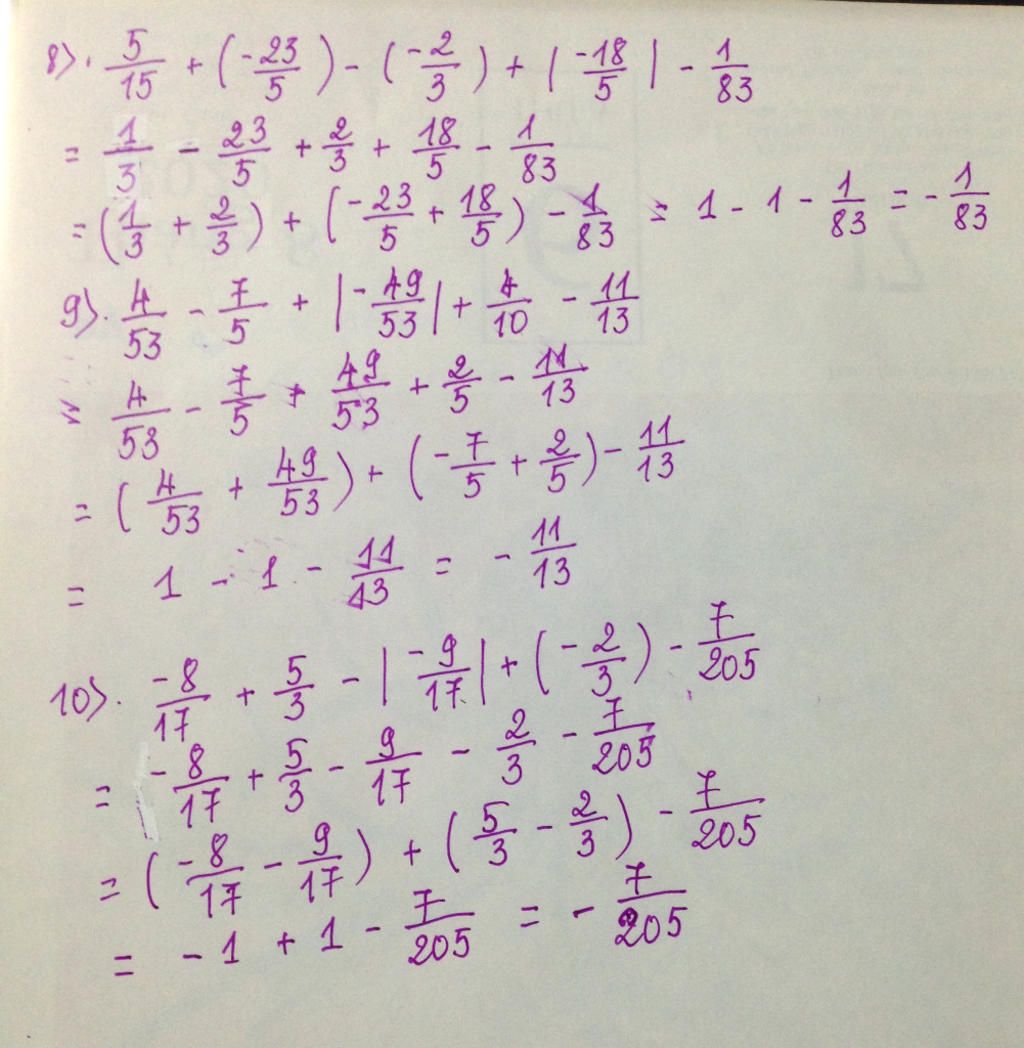 8>. 5/15 + (-23/5) - (-2/3) + |-18/5| - 1/83
= 1/3 - 23/5 + 2/3 + 18/5 - 1/83
= (1/3 + 2/3) + (-23/5 + 18/5) - 1/83 = 1 - 1 - 1/83 = - 1/83
9>. 4/53 - 7/5 + |-49/53| + 4/10 - 11/13
= 4/53 - 7/5 + 49/53 + 2/5 - 11/13
= (4/53 + 49/53) + (-7/5 + 2/5) - 11/13
= 1 - 1 - 11/13 = - 11/13
10>. -8/17 + 5/3 - |-9/17| + (-2/3) - 7/205
= -8/17 + 5/3 - 9/17 - 2/3 - 7/205
= (-8/17 - 9/17) + (5/3 - 2/3) - 7/205
= -1 + 1 - 7/205 = - 7/205